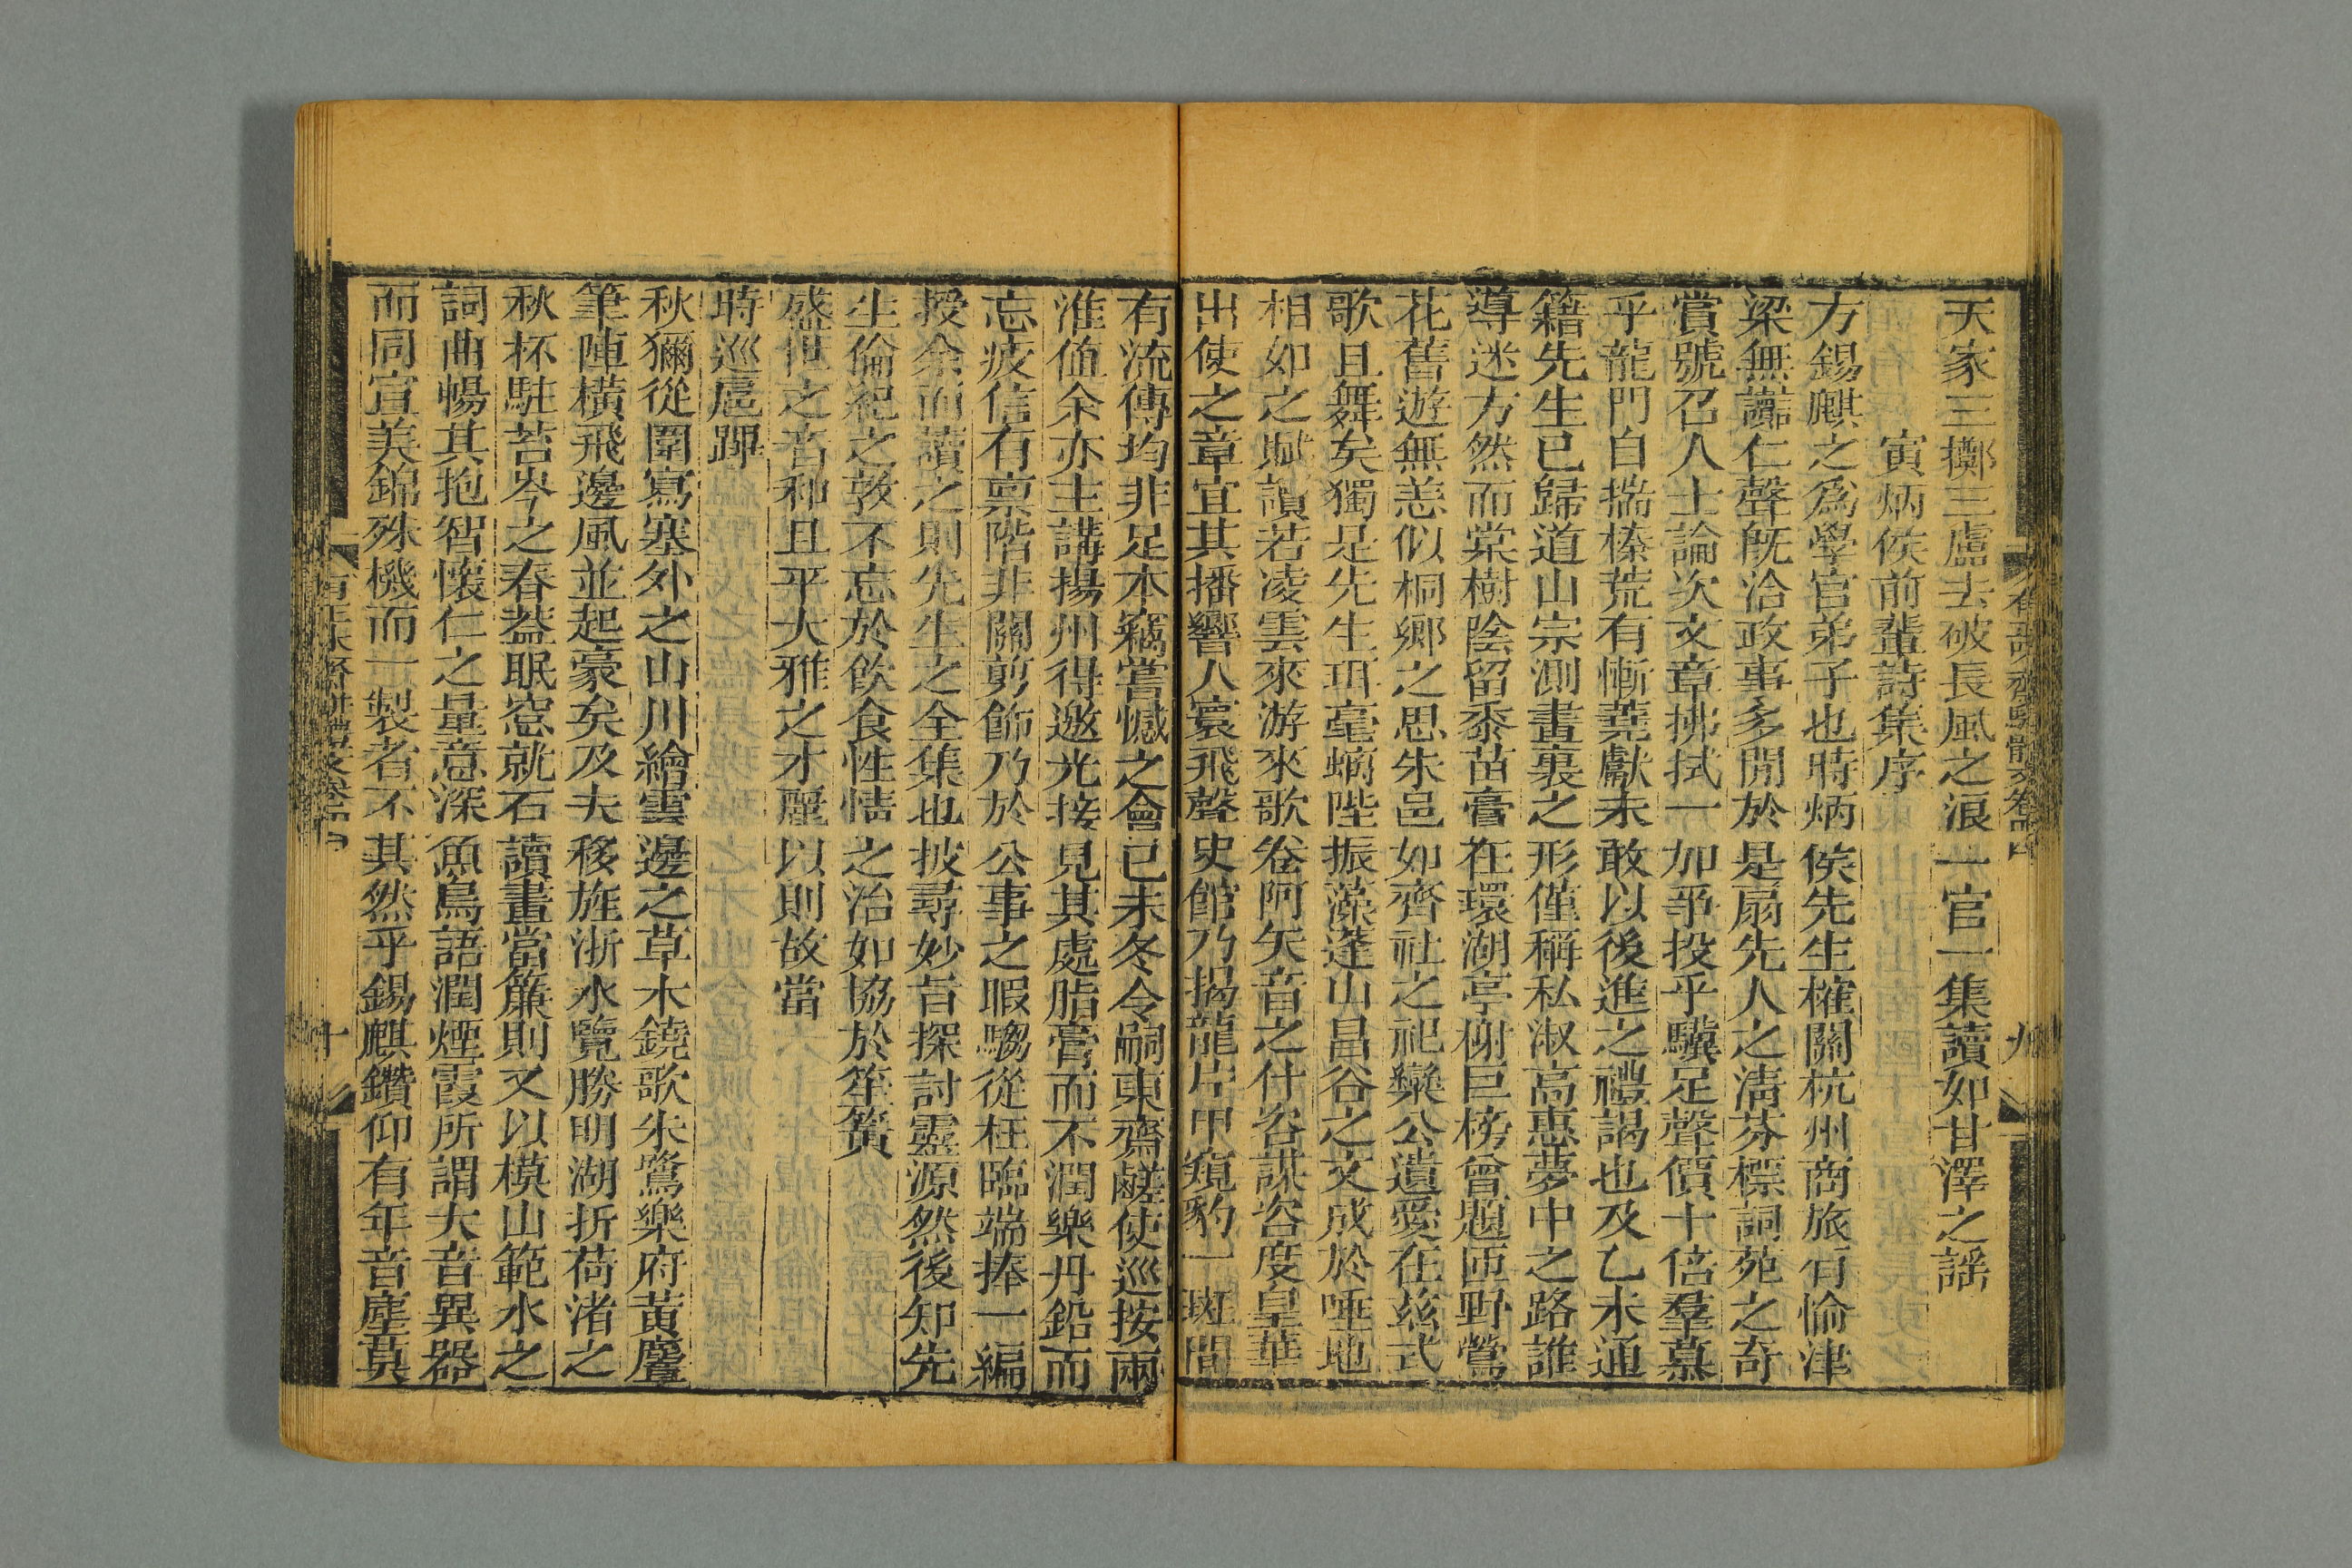 天家三擲三盧去破長風之浪一官一集讀如甘澤之謡
寅炳侯前輩詩集序
方錫麒之爲學官弟子也時炳侯先生榷關杭州商旅有愉津
梁無讟仁聲旣洽政事多閒於是扇先人之淸芬標詞苑之奇
賞號召人士論次文章拂拭一加爭投乎驥足聲價十倍羣慕
乎龍門自揣榛荒有慚蕘獻未敢以後進之禮謁也及乙未通
籍先生已歸道山宗測畫裏之形僅稱私淑高惠夢中之路誰
導迷方然而棠樹陰留黍苗膏在環湖亭榭巨榜曾題匝野鶯
花舊遊無恙似桐鄉之思朱邑如齊社之祀欒公遺愛在兹式
歌且舞矣獨是先生珥毫螭陛振藻蓬山昌谷之文成於唾地
相如之賦讀若凌雲來游來歌卷阿矢音之什咨謀咨度皇華
出使之章宜其播響人寰飛聲史館乃揭龍片甲窺豹一斑間
有流傳均非足本竊嘗憾之會已未冬令嗣東齋鹺使巡按兩
淮値余亦主講揚州得邀光接見其處脂膏而不潤樂丹鉛而
忘疲信有禀階非關剪飾乃於公事之暇騶從枉臨端捧一編
授余而讀之則先生之全集也披尋妙旨探討靈源然後知先
生倫紀之敦不忘於飲食性情之治如協於笙簧
盛世之音和且平大雅之才麗以則故當
時巡扈蹕
秋獮從圍寫塞外之山川繪雲邊之草木鐃歌朱鷺樂府黃麞
筆陣橫飛邊風並起豪矣及夫移旌浙水覽勝明湖折荷渚之
秋杯駐苔岑之春葢眠窓就石讀畫當簾則又以模山範水之
詞曲暢其抱智懷仁之量意深魚鳥語潤煙霞所謂大音異器
而同宣美錦殊機而一製者不其然乎錫麒鑽仰有年音塵莫